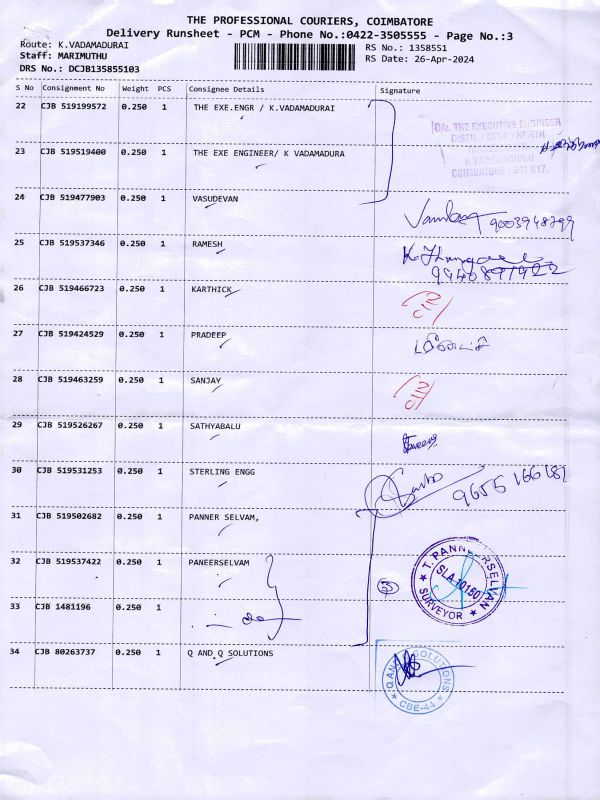 THE PROFESSIONAL COURIERS, COIMBATORE
Delivery Runsheet - PCM - Phone No.:0422-3505555 - Page No.:3
Route: K.VADAMADURAI
Staff: MARIMUTHU
DRS No.: DCJB135855103
RS No.: 1358551
RS Date: 26-Apr-2024
S No Consignment No Weight PCS Consignee Details Signature
22 CJB 519199572 0.250 1 THE EXE.ENGR / K.VADAMADURAI
O/o. THE EXECUTIVE ENGINEER
K.VADAMADURAI
COIMBATORE - 641 017.
23 CJB 519519400 0.250 1 THE EXE ENGINEER/ K VADAMADURA
24 CJB 519477903 0.250 1 VASUDEVAN
9003948799
25 CJB 519537346 0.250 1 RAMESH
26 CJB 519466723 0.250 1 KARTHICK
27 CJB 519424529 0.250 1 PRADEEP
28 CJB 519463259 0.250 1 SANJAY
29 CJB 519526267 0.250 1 SATHYABALU
30 CJB 519531253 0.250 1 STERLING ENGG
31 CJB 519502682 0.250 1 PANNER SELVAM,
32 CJB 519537422 0.250 1 PANEERSELVAM
T. PANNEERSELVAN
SURVEYOR
33 CJB 1481196 0.250 1
34 CJB 80263737 0.250 1 Q AND Q SOLUTIONS
Q AND Q SOLUTIONS
CBE-44